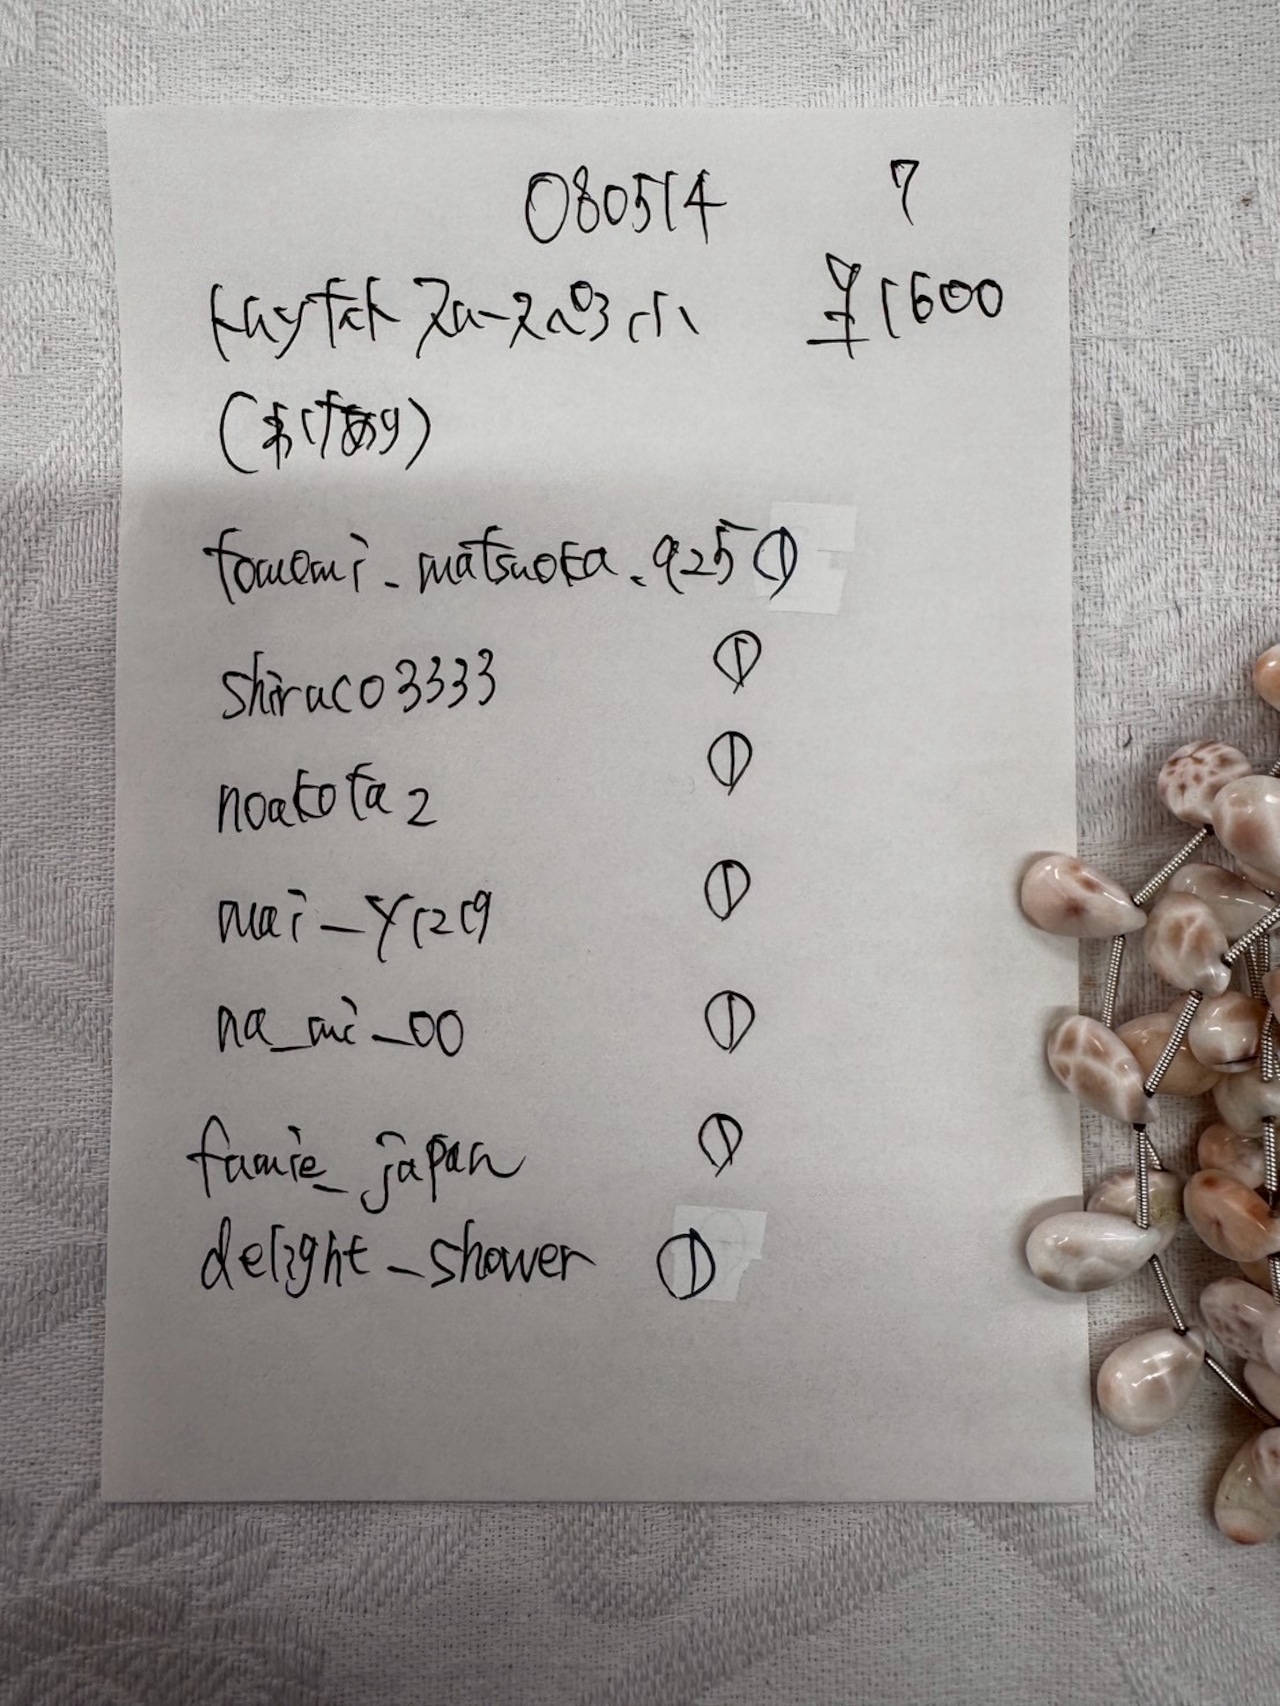 080514 7
¥1600
(わけあり)
tomomi_matsuoka.925 ①
shiraco3333 ①
noakota2 ①
mai_y1219 ①
na_mi_00 ①
famie_japan ①
delight_shower ①